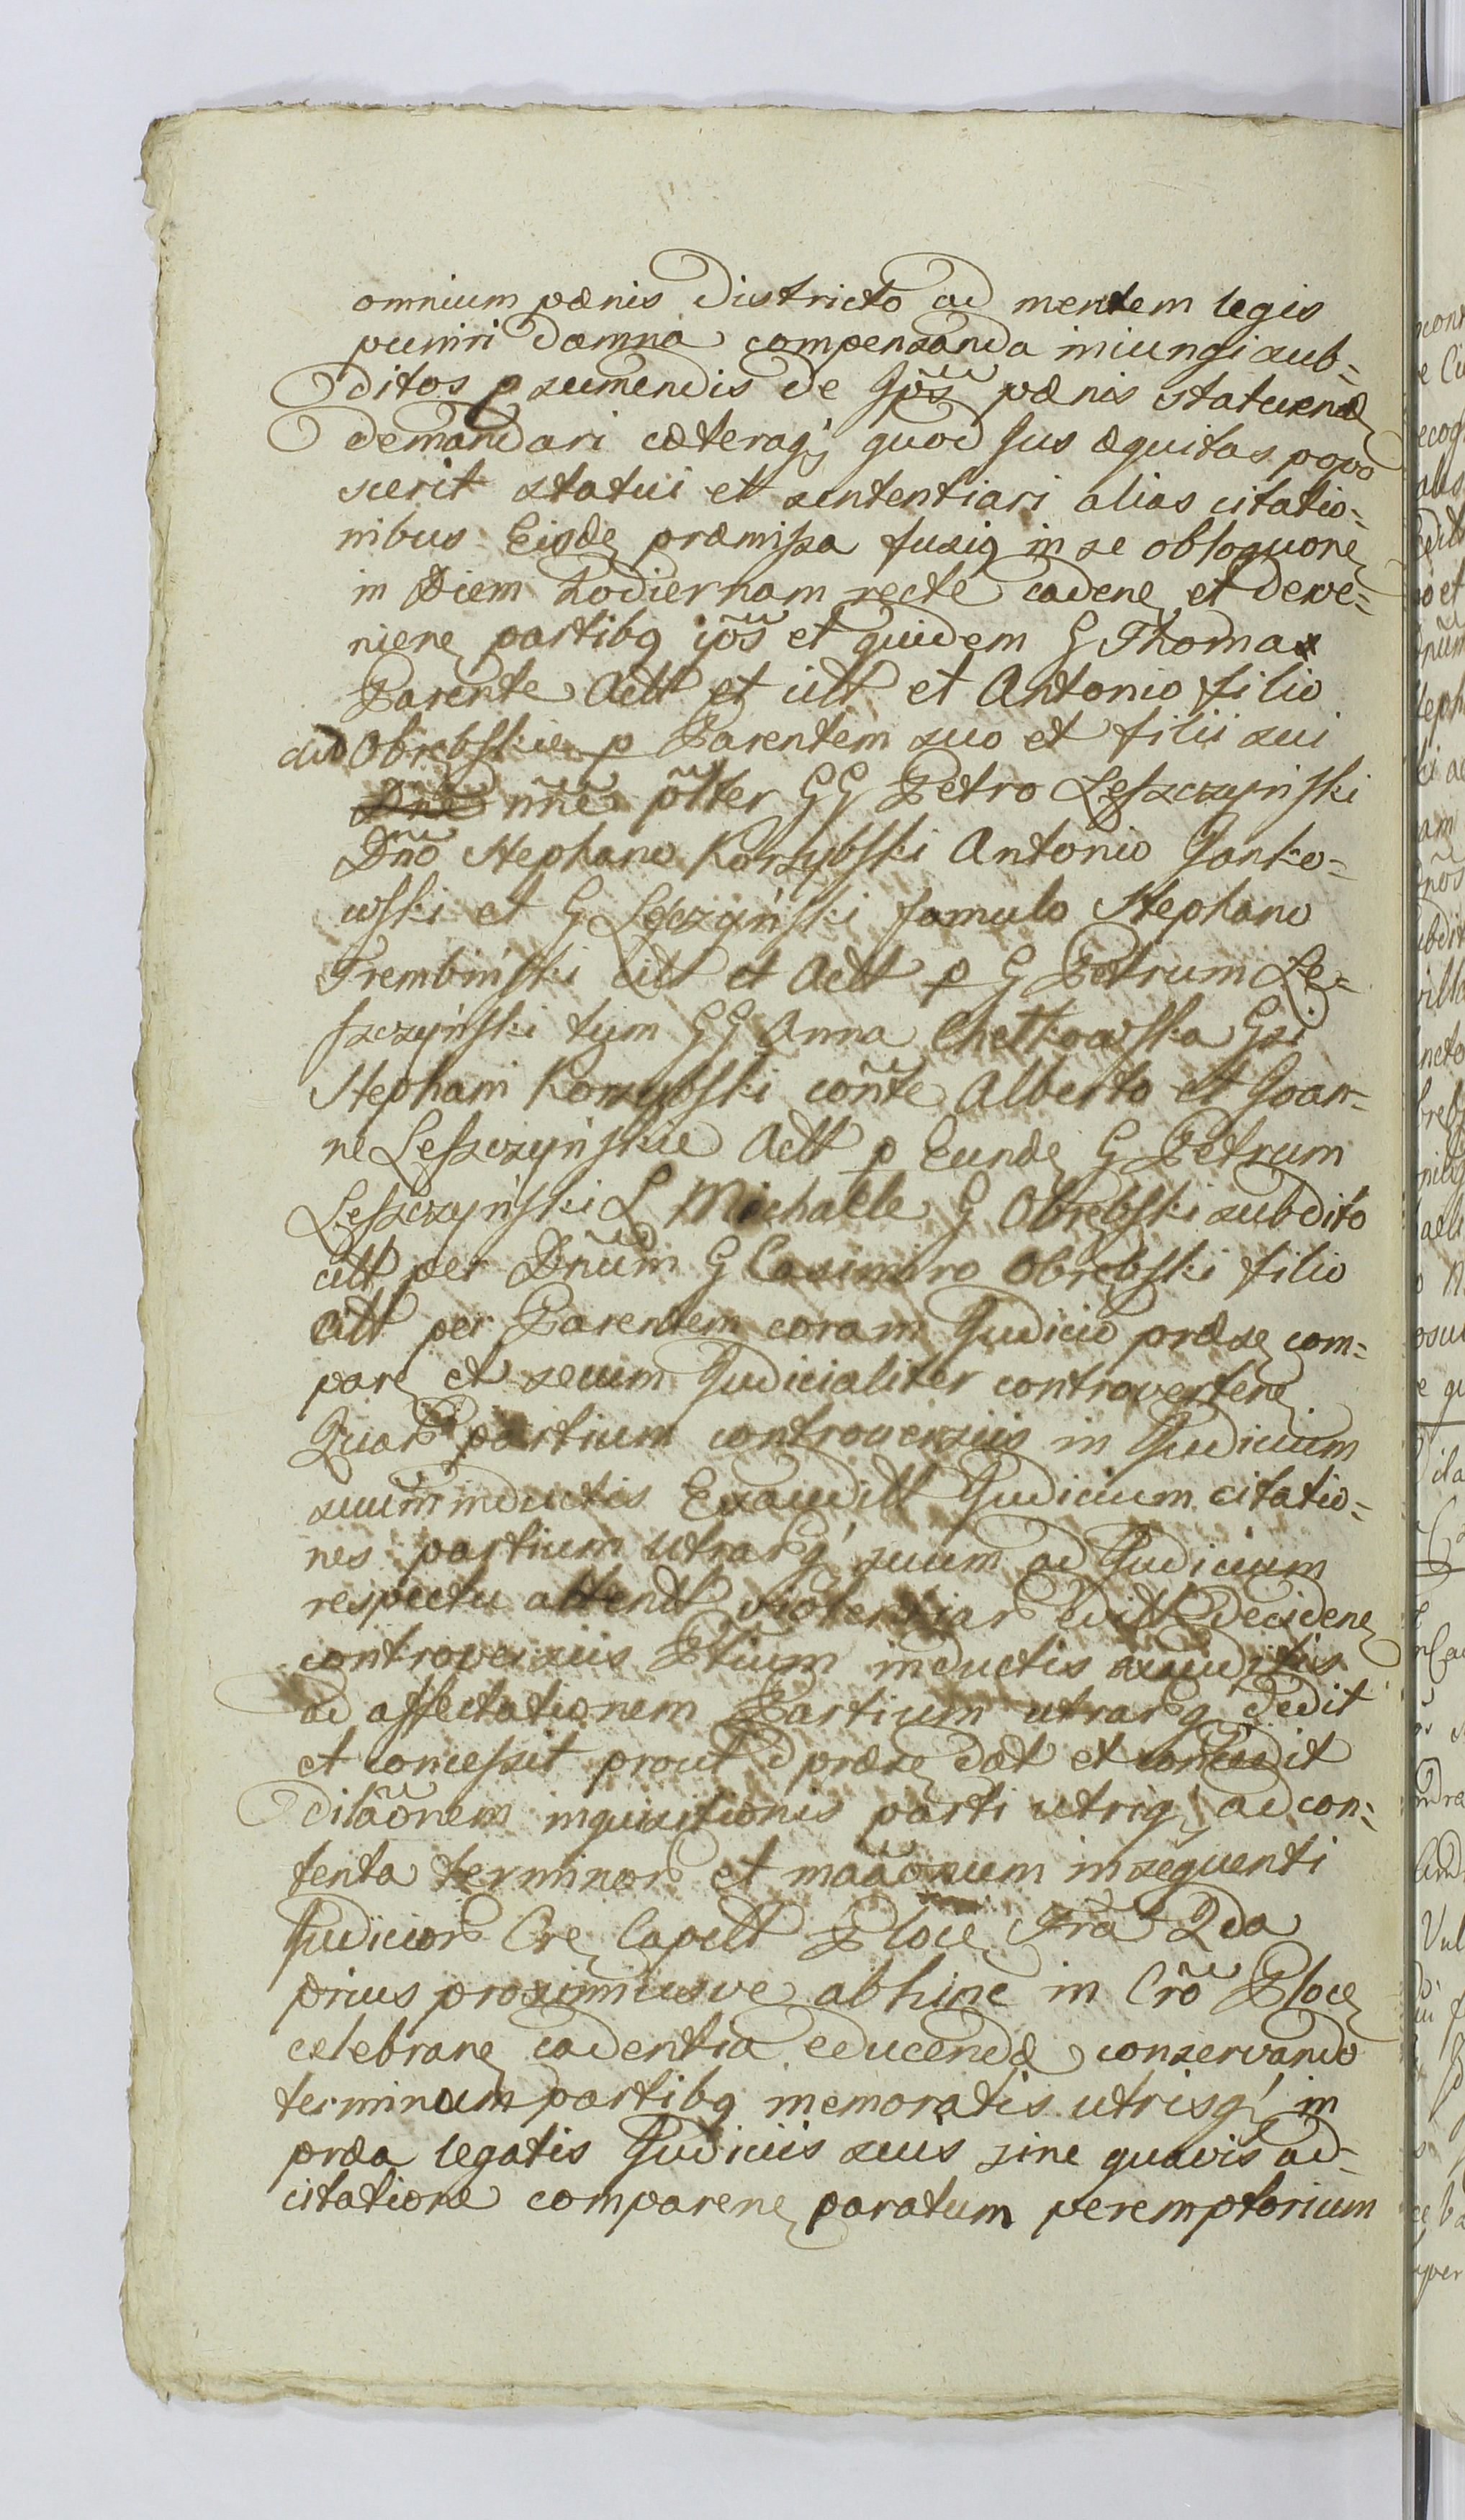 omnium pænis districto ad mentem legis
puniri damna compensanda iniungi sub=
ditos p sumendis de Ipõs pænis statuend
demandari cæteraq; quod Jus æquitas popo
scerit statui et sententiari alias citatio=
nibus Eisdę præmissa fusig in se obloquonę
in Diem hodiernam recte cadenę et deve=
nienę partibg ipõs et quidem G Thoma
Parente Actt et citt et Antonio filio
Obrębskie p Parentem suo et filii sui
nñe põtter GG Petro Leszczyński
Dño Stephano Korzybski Antonio Janko=
wski et G Lęsczyński famulo Stephano
Trembiński citt et Actt p G Petrum Le=
szczyński tum GG Anna Chełkowska Gsi
Stephani Korzybski cõnte Alberto et Joan=
ne Leszczyńskie Actt p Eundę G Petrum
Leszczyński L Michaele G Obrębski subdito
citt per Dñum G Casimiro Obrębski filio
citt per Parentem coram Judicio præsę com=
parę et secum Judicialiter controvertenę
Quar partium controversiis in Judicium
suum inductis Exauditt Judicium citatio=
nes partium utrarq; suum ad Judicium
respectu attentt violentiar editt decidenę
controversiis Ptium inductis exauditis
ad affectationem Partium utrarq dedit
et concessit prout præsę dat et concedit
dilãonem inquisitionis parti utriq; ad con=
tenta terminor et maãonum insequenti
Judicior Crę Capitt Plocę Frã 2da
prius proximiusve abhinc in Crõ Plocę
celebranę cadentia educendæ conservando
terminum partibg memoratis utrisq; in
præa legatis Judiciis suis sine quavis ad=
citatione comparenę paratum peremptorium